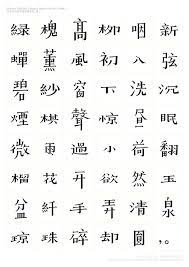 綠槐髙柳咽新
蟬薰風初入弦
碧紗窗下洗沉
煙棋聲惊昼眠
微雨過小荷翻
榴花開欲然玉
盆纖手弄清泉
琼珠碎却圓,。